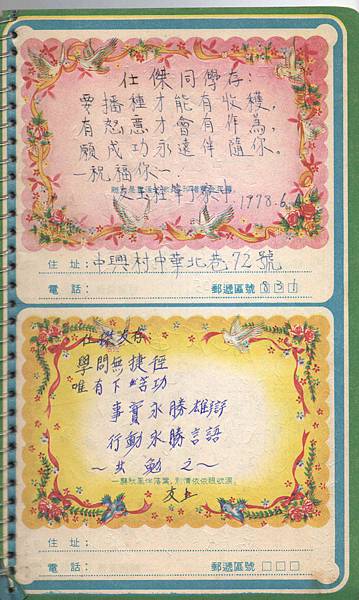 仕傑同學存:
要播種才能有收穫,
有怒憲才會有作為,
願成功永遠伴隨你。
—祝福你—
友 1978.6.
住址:中興村中華北巷72號
電話: 郵遞區號 831
仕傑友存
學問無捷徑
唯有下苦功
事實永勝雄辯
行動永勝言語
～共勉之～
一縣秋風伴落葉,別情依依眼號淚。
友上
住址:
電話: 郵遞區號